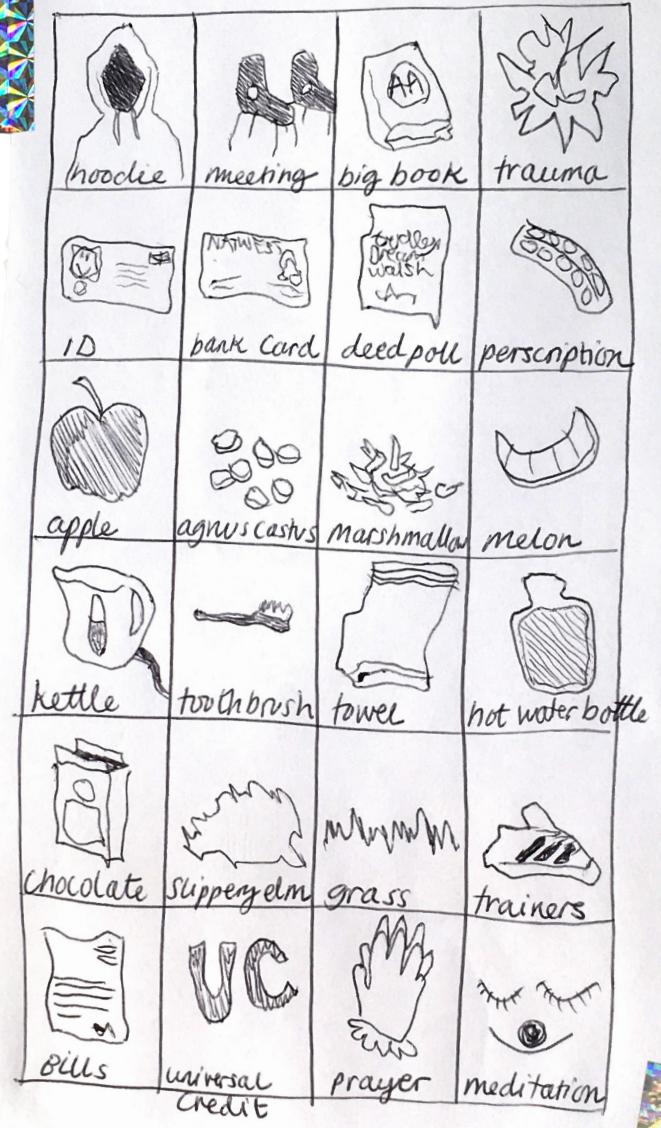 hoodie
meeting
AA
big book
trauma
ID
NATWEST
bank Card
Dream
Walsh
deedpoll
perscription
apple
agnus castus
Marshmallow
melon
kettle
toothbrush
towel
hot water bottle
Chocolate
slippery elm
grass
trainers
Bills
UC
universal
Credit
prayer
meditation